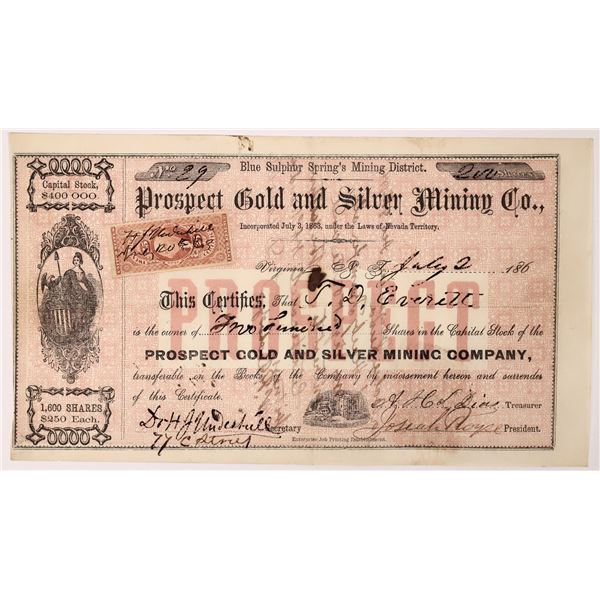 No. 29
Blue Sulphur Spring's Mining District.
200 Shares
Capital Stock,
$400 000
Prospect Gold and Silver Mining Co.,
Incorporated July 3, 1863, under the Laws of Nevada Territory.
Virginia N. T. July 2 186
This Certifies, That T. D. Everett
is the owner of Two Hundred Shares in the Capital Stock of the
PROSPECT GOLD AND SILVER MINING COMPANY,
transferable on the Books of the Company by endorsement hereon and surrender
of this Certificate.
1,600 SHARES
$250 Each.
Treasurer
Dr H J Underhill Secretary
Josiah Royse President.
77 C Street
Enterprise Job Printing Establishment.
PROSPECT